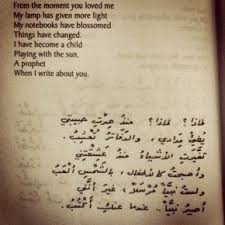 From the moment you loved me
My lamp has given more light
My notebooks have blossomed
Things have changed.
I have become a child
Playing with the sun.
A prophet
When I write about you.
لماذا ؟ لماذا ؟ منذ صرتِ حبيبتي
يضيءُ مدادي ، والدفاترُ تُعشِبُ
تغيّرتِ الأشياءُ منذ عشقتِني
وأصبحتُ كالأطفال ، بالشمسِ ألعبُ
ولستُ نبيّاً مُرسلاً ، غير أنّني
أصيرُ نبيّاً .. عندما عنكِ أكتبُ ..